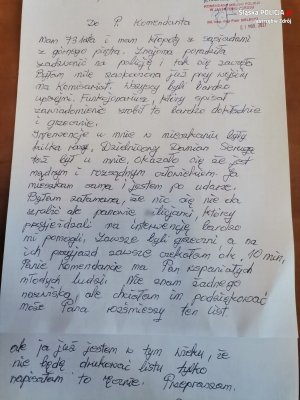 Śląska POLICJA
Jastrzębie Zdrój
Do P. Komendanta
Mam 73 lata i mam kłopoty z sąsiadami
z górnego piętra. Znajoma poradziła
zadzwonić na policję i tak się zaczęło.
Byłam mile zaskoczona już przy wejściu
na Komisariat. Wszyscy byli bardzo
uprzejmi. Funkcjonariusz, który spisał
zawiadomienie zrobił to bardzo dokładnie
i grzecznie.
Interwencje u mnie w mieszkaniu były
kilka razy, Dzielnicowy Damian Seruga
też był u mnie, okazało się że jest
mądrym i rozsądnym człowiekiem. Ja
mieszkam sama i jestem po udarze.
Byłam załamana, że nic się nie da
zrobić ale panowie policjanci, którzy
przyjeżdżali na interwencję bardzo
mi pomogli. Zawsze byli grzeczni a na
ich przyjazd zawsze czekałam ok. 10 min,
Panie Komendancie ma Pan wspaniałych
młodych ludzi. Nie znam żadnego
nazwiska, ale chciałam im podziękować
może Pana rozśmieszy ten list
ale ja już jestem w tym wieku, że
nie będę drukować listu tylko
napisałam to ręcznie. Przepraszam.